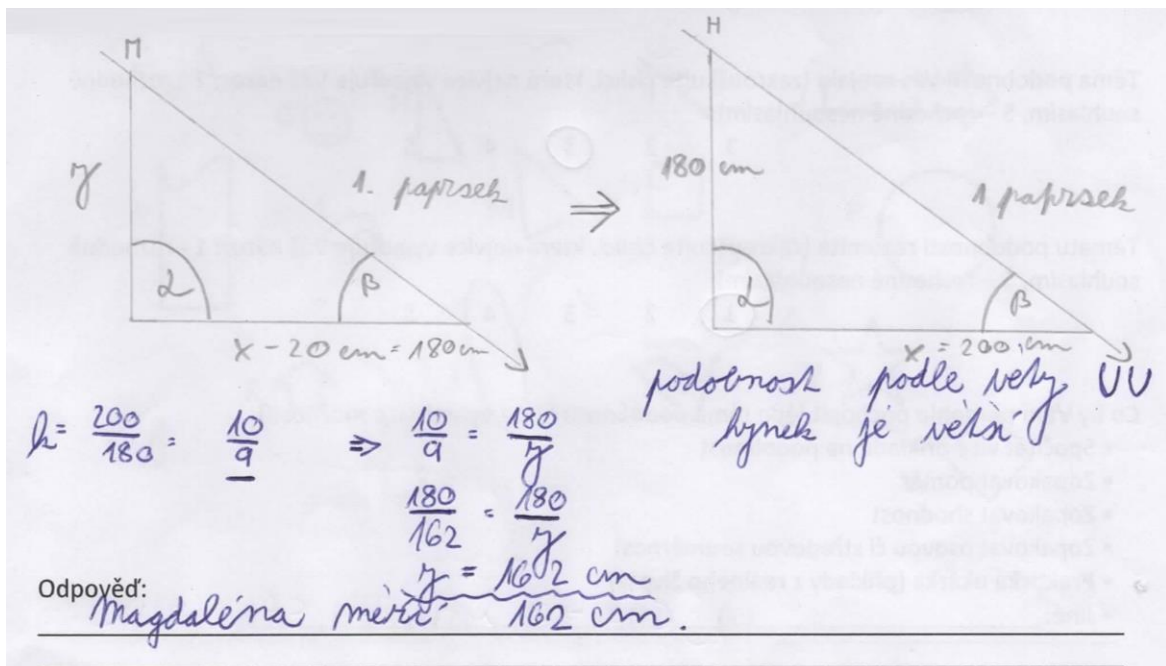 M
y
1. paprsek
α
β
x - 20 cm = 180 cm
⇒
H
180 cm
1. paprsek
α
β
x = 200 cm
podobnost podle věty UU
hynek je větší
k = 200/180 = 10/9 ⇒ 10/9 = 180/y
180/162 = 180/y
y = 162 cm
Odpověď:
Magdaléna měří 162 cm.